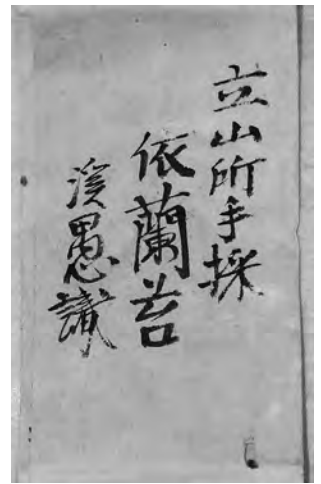 立山所手採
依蘭苔
溪愚識